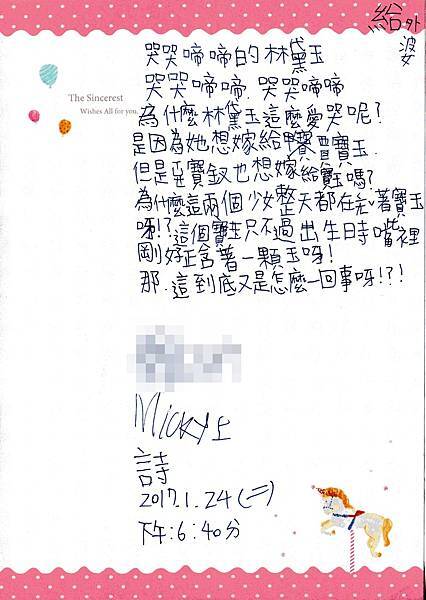 給外婆
The Sincerest
Wishes All for you.
哭哭啼啼的林黛玉
哭哭啼啼.哭哭啼啼
為什麼林黛玉這麼愛哭呢?
是因為她想嫁給賈寶玉.
但是寶釵也想嫁給寶玉嗎?
為什麼這兩個少女整天都在著寶玉
呀!?這個寶玉只不過出生時嘴裡
剛好正含著一顆玉呀!
那.這到底又是怎麼一回事呀!?!
Micky上
詩
2017.1.24(二)
下午:6:40分